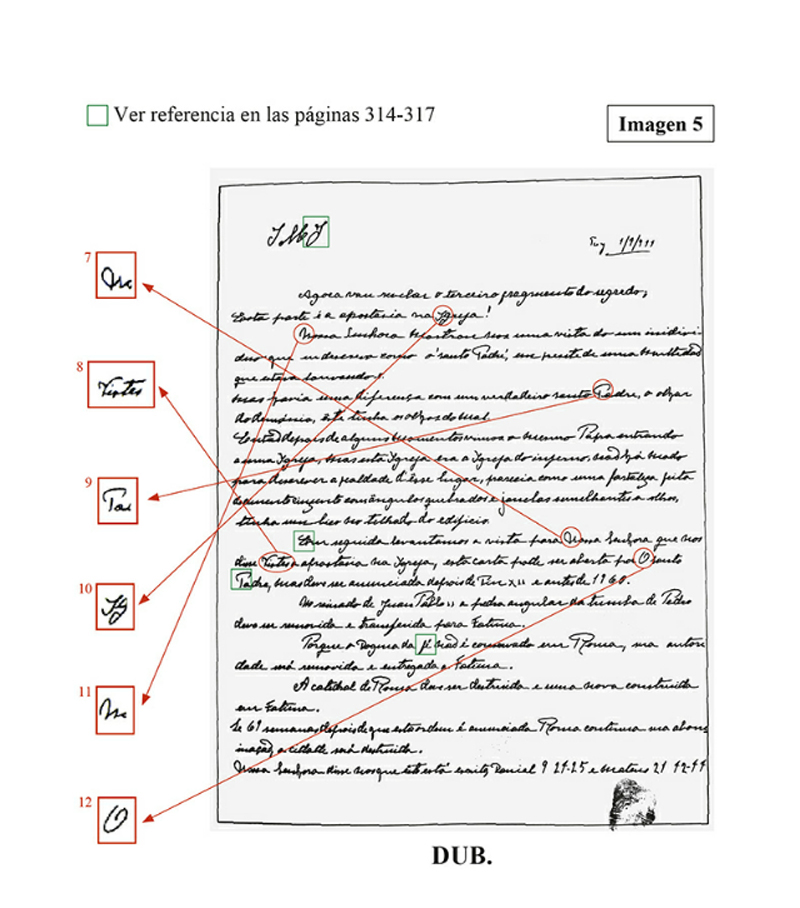 Ver referencia en las páginas 314-317
Imagen 5
J M J
Tuy 1/9/944
Agora vou revelar o terceiro fragmento do segredo;
Esta parte é a apostasia na Igreja!
Nossa Senhora mostrou nos uma vista do um individuo
que eu descrevo como o 'santo Padre', em frente de uma multidad
que estava louvando o.
Mas havia uma diferença com um verdadeiro santo Padre, o olhar
do demonio, este tinha os olhos do mal.
depois de alguns momentos vimos o mesmo Papa entrando
a uma Igreja, mas esta Igreja era a Igreja do inferno, modo
para descrever a fealdade d'esse lugar, parecia como uma fortaleza feita
de cimento cinzento com ângulos quebrados e janelas semelhantes a olhos,
tinha um bico no telhado do edificio.
Em seguida levantamos a vista para Nossa Senhora que nos
disse Vistes a apostasia na Igreja, esta carta pode ser aberta por O santo
Padre, mas deve ser anunciada depois de Pio XII e antes de 1960.
No reinado de Juan Pablo II a pedra angular da tumba de Pedro
deve ser removida e transferida para Fatima.
Porque o Dogma da fé não é conservado em Roma, sua autori
dade será removida e entregada a Fatima.
A catedral de Roma deve ser destruida e uma nova construida
em Fatima.
Se 69 semanas depois de que esta ordem é anunciada Roma continua sua abom
inação, a cidade será destruida.
Nossa Senhora disse nos que este está escrito, Daniel 9 24-25 e Mateus 21 42-44
7
8
Vistes
9
10
Ig
11
12
O
DUB.